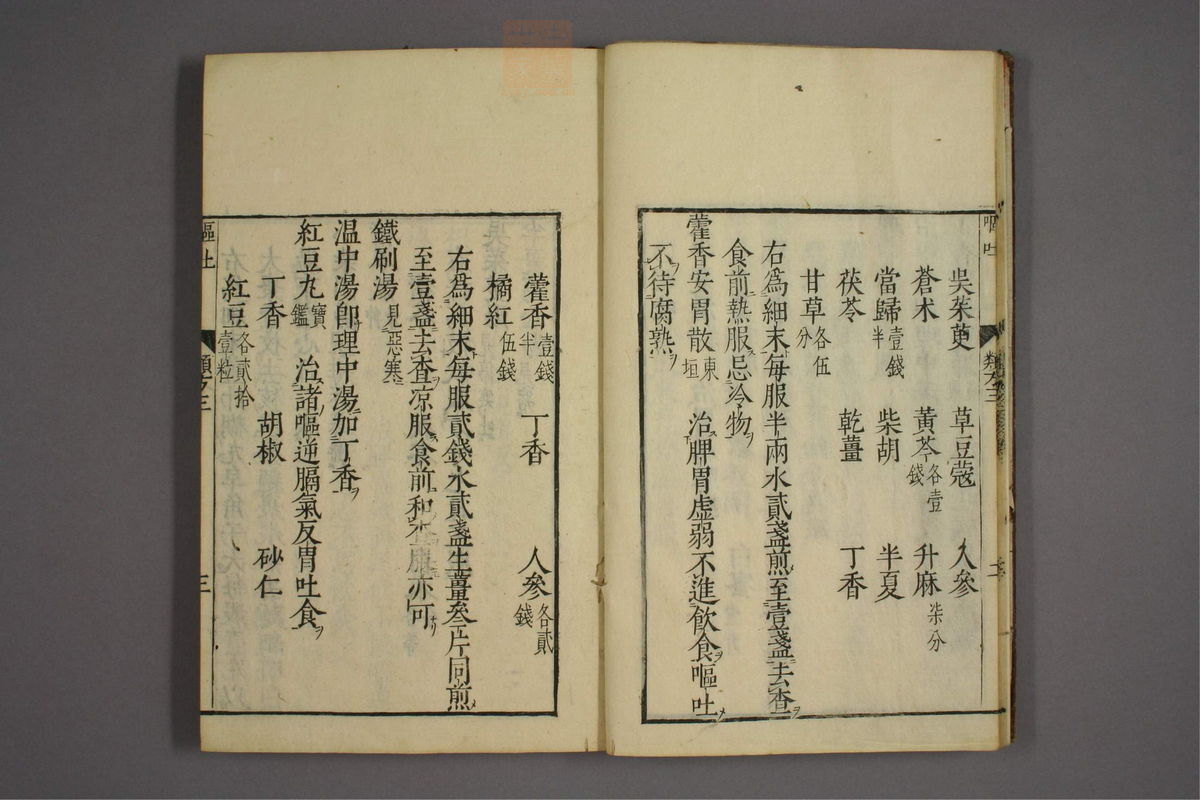 嘔吐
類方三
二
吳茱萸 草豆蔻 人參
蒼术 黃芩各壹錢 升麻柒分
當歸壹錢半 柴胡 半夏
茯苓 乾薑 丁香
甘草各伍分
右爲細末每服半兩水貳盞煎至壹盞去查
食前熱服忌冷物
藿香安胃散東垣 治脾胃虚弱不進飲食嘔吐
不待腐熟
藿香壹錢半 丁香 人參各貳錢
橘紅伍錢
右爲細末每服貳錢水貳盞生薑叁片同煎
至壹盞去查凉服食前和查服亦可
鐵刷湯見惡寒
温中湯卽理中湯加丁香
紅豆丸寶鑑 治諸嘔逆膈氣反胃吐食
丁香 胡椒 砂仁
紅豆各貳拾壹粒
嘔吐
類方三
三